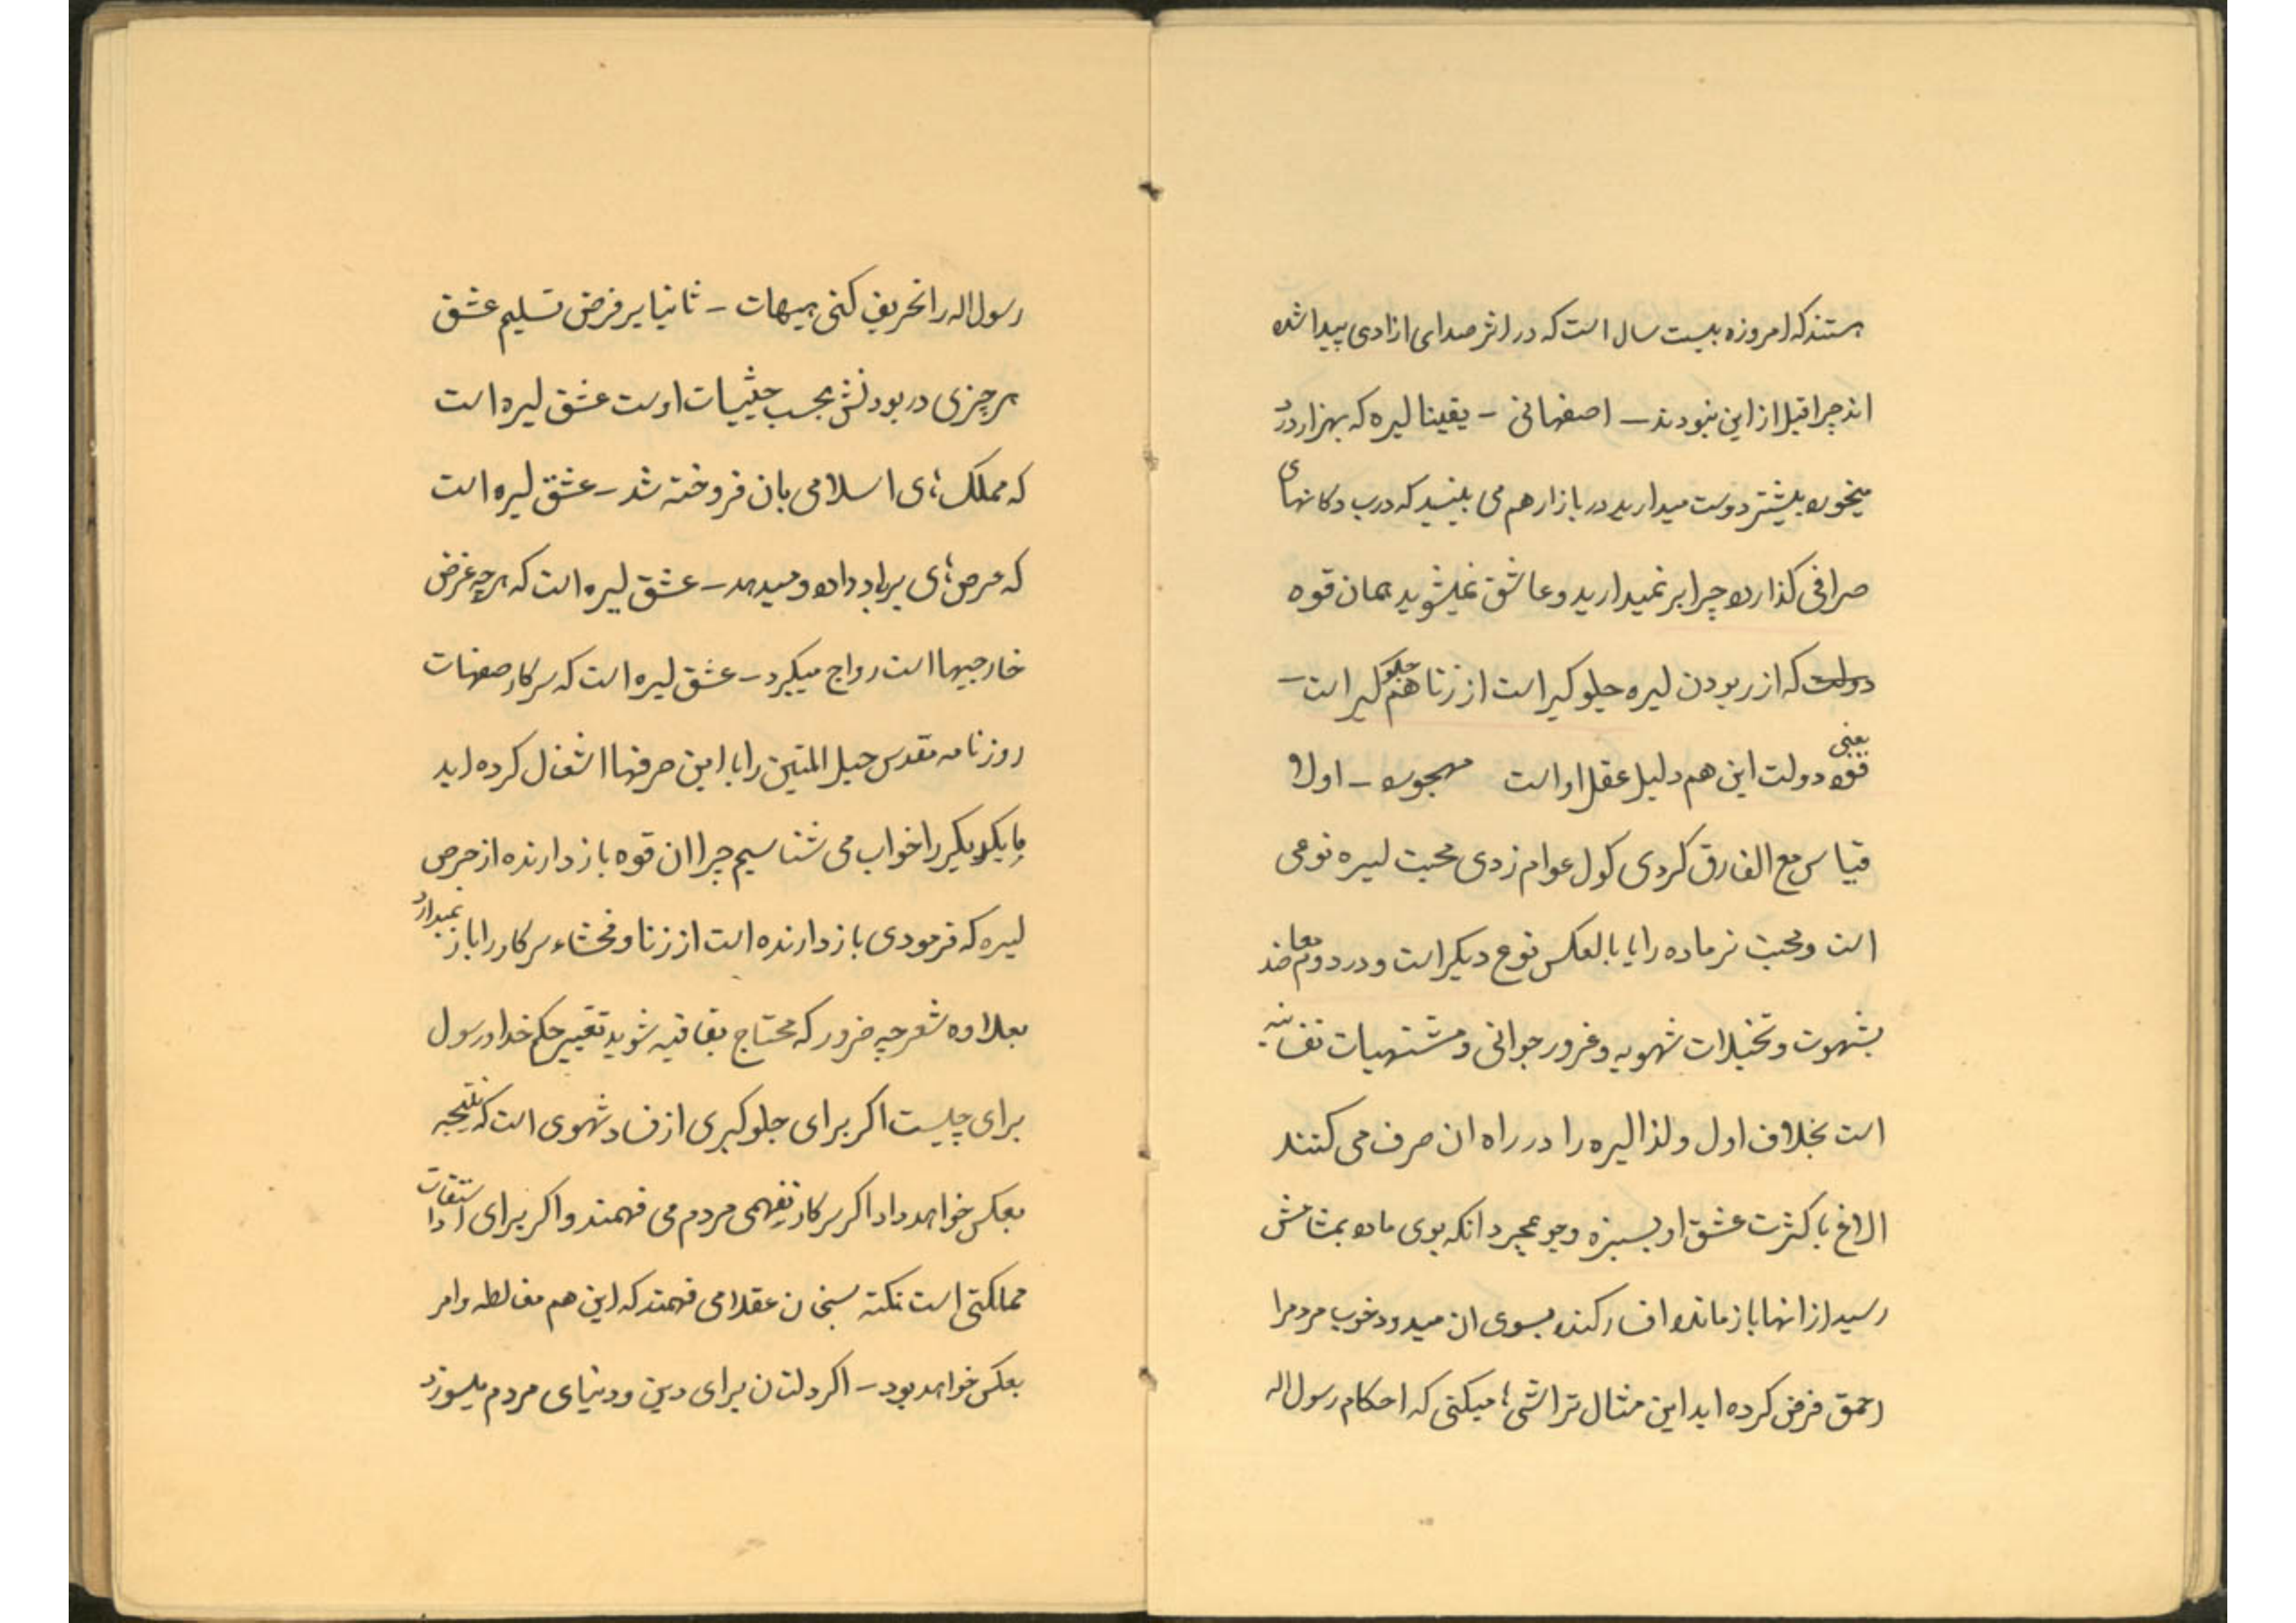 هستند که امروزه بیست سال است که در اثر صدای ازادی پیدا شده
اند چرا قبل از این نبودند – اصفهانی – یقینا لیره که بهزار درد
میخورد بیشتر دوست میدارید در بازار هم می بینید که درب دکانهای
صرافی گذارده چرا بر نمیدارید و عاشق نمیشوید همان قوه
دولت که از ربودن لیره جلوگیر است از زنا هم جلوگیر است –
یعنی قوه دولت این هم دلیل عقل او است مهجوره – اولا
قیاس مع الفارق کردی گول عوام زدی محبت لیره نوعی
است و محبت نر ماده را یا بالعکس نوع دیگر است و در دوم
بشهوت و تخیلات شهویه و غرور جوانی و مشتهیات نفسانیه
است بخلاف اول و لذا لیره را در راه ان صرف می کنند
الاغ با کثرت عشق او بسبزه و جو بمجرد انکه بوی ماده بمشامش
رسید از انها باز مانده افسار کنده بسوی ان میدود خوب مردمرا
احمق فرض کرده اید این مثال تراشیها میکنی که احکام رسول اله
رسول اله را تحریف کنی هیهات – ثانیا بر فرض تسلیم عشق
هر چیزی در بودنش بحسب حیثیات اوست عشق لیره است
که مملکتهای اسلامی بان فروخته شد – عشق لیره است
که عرضهای برباد داده و میدهد – عشق لیره است که هر چه غرض
خارجیها است رواج میگیرد – عشق لیره است که سرکار صفحات
روزنامه مقدس حبل المتین را با این حرفها اشغال کرده اید
ما یکدیگر را خواب می شناسیم چرا ان قوه باز دارنده از حرص
لیره که فرمودی باز دارنده است از زنا و فحشاء سرکار را باز نمیدارد
بعلاوه شعر چه ضرور که محتاج بقافیه شوید تغییر حکم خدا و رسول
برای چیست اگر برای جلوگیری از فساد شهوی است که نتیجه
بعکس خواهد داد اگر سرکار نفهمی مردم می فهمند و اگر برای
مملکتی است نکته سنجان عقلا می فهمند که این هم مغالطه و امر
بعکس خواهد بود – اگر دلتان برای دین و دنیای مردم میسوزد